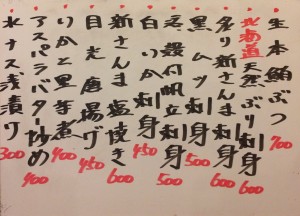 生本鮪ぶつ 700
北海道天然ぶり刺身 600
炙り新さんま刺身 600
黒ムツ刺身 500
殻付帆立刺身 500
白いか刺身 450
新さんま塩焼き 600
目光唐揚げ 450
いかと里芋煮 400
アスパラバター炒め 400
水ナス浅漬け 300